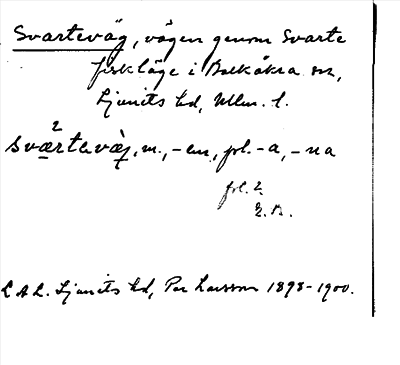 Svarteväg, vägen genom Svarte
fiskläge i Balkåkra sn,
Ljunits hd, Mlm. l.
svärtevä̀g, m., -en, pl. -a, -na
pl. 2.
L A L. Ljunits hd, Per Larsson 1898-1900.